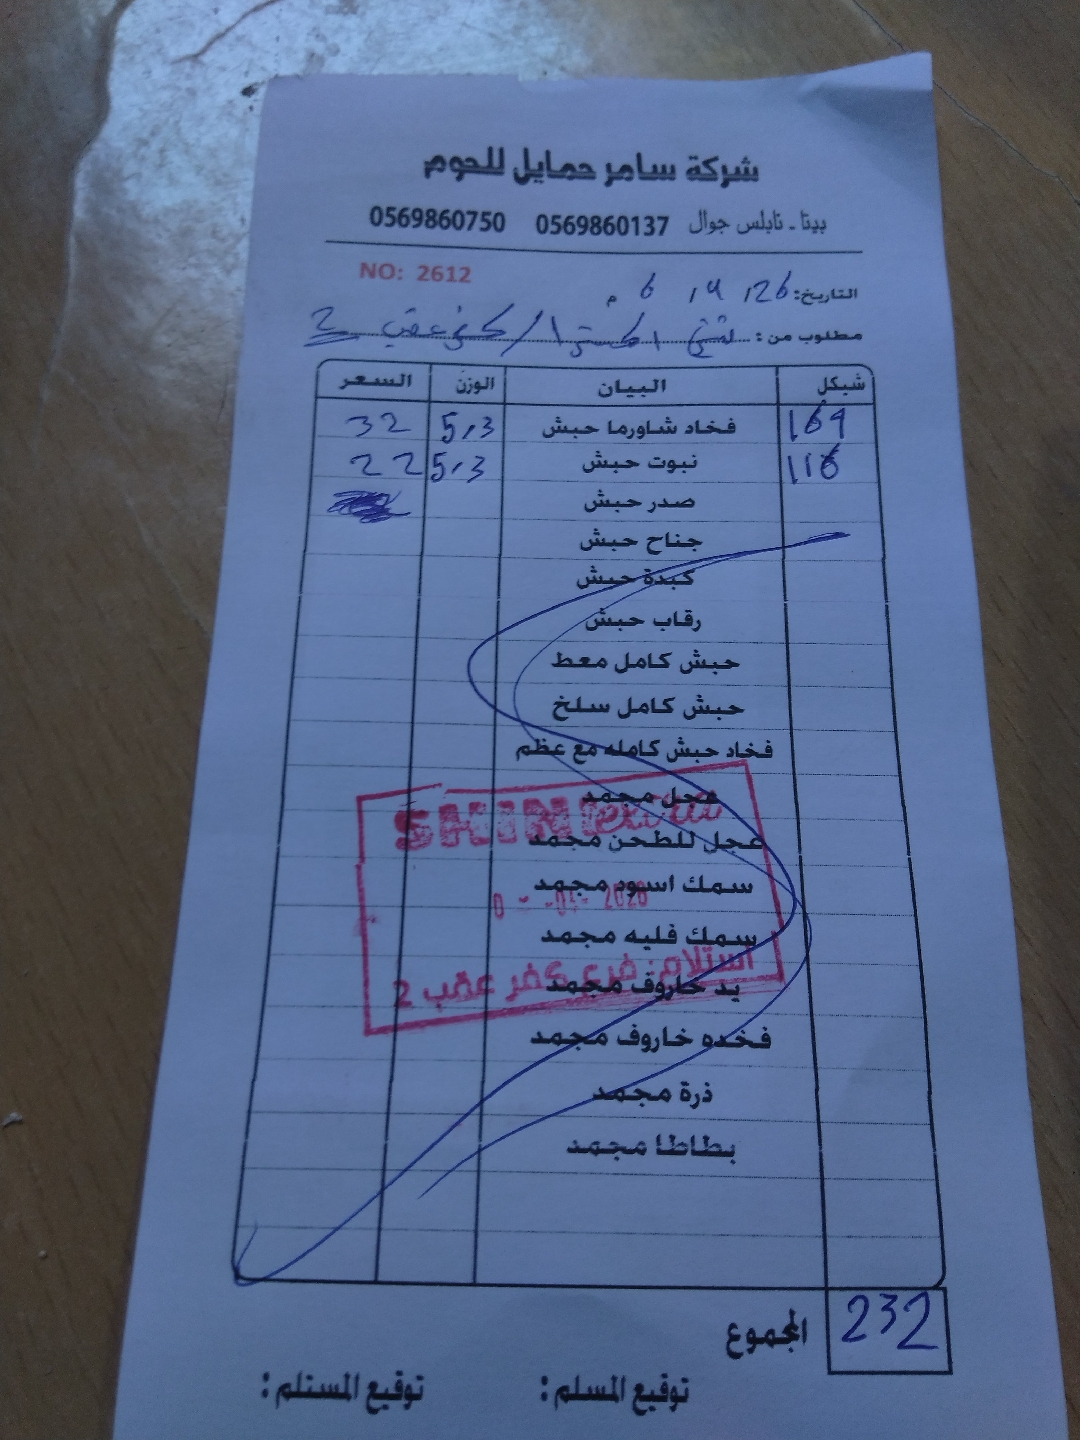 شركة سامر حمايل للحوم
بيتا - نابلس جوال 0569860137 0569860750
NO: 2612
التاريخ: 26 / 4 / 6 م
مطلوب من : / كفر عقب 2
شيكل البيان الوزن السعر
169 فخاد شاورما حبش 5,3 32
116 نبوت حبش 5,3 22
صدر حبش
جناح حبش
كبدة حبش
رقاب حبش
حبش كامل معط
حبش كامل سلخ
فخاد حبش كامله مع عظم
عجل مجمد
عجل للطحن مجمد
سمك اسود مجمد
سمك فليه مجمد
يد خاروف مجمد
فخده خاروف مجمد
ذرة مجمد
بطاطا مجمد
SHINI extra
استلام: فرع كفر عقب 2
المجموع 232
توقيع المسلم : توقيع المستلم :